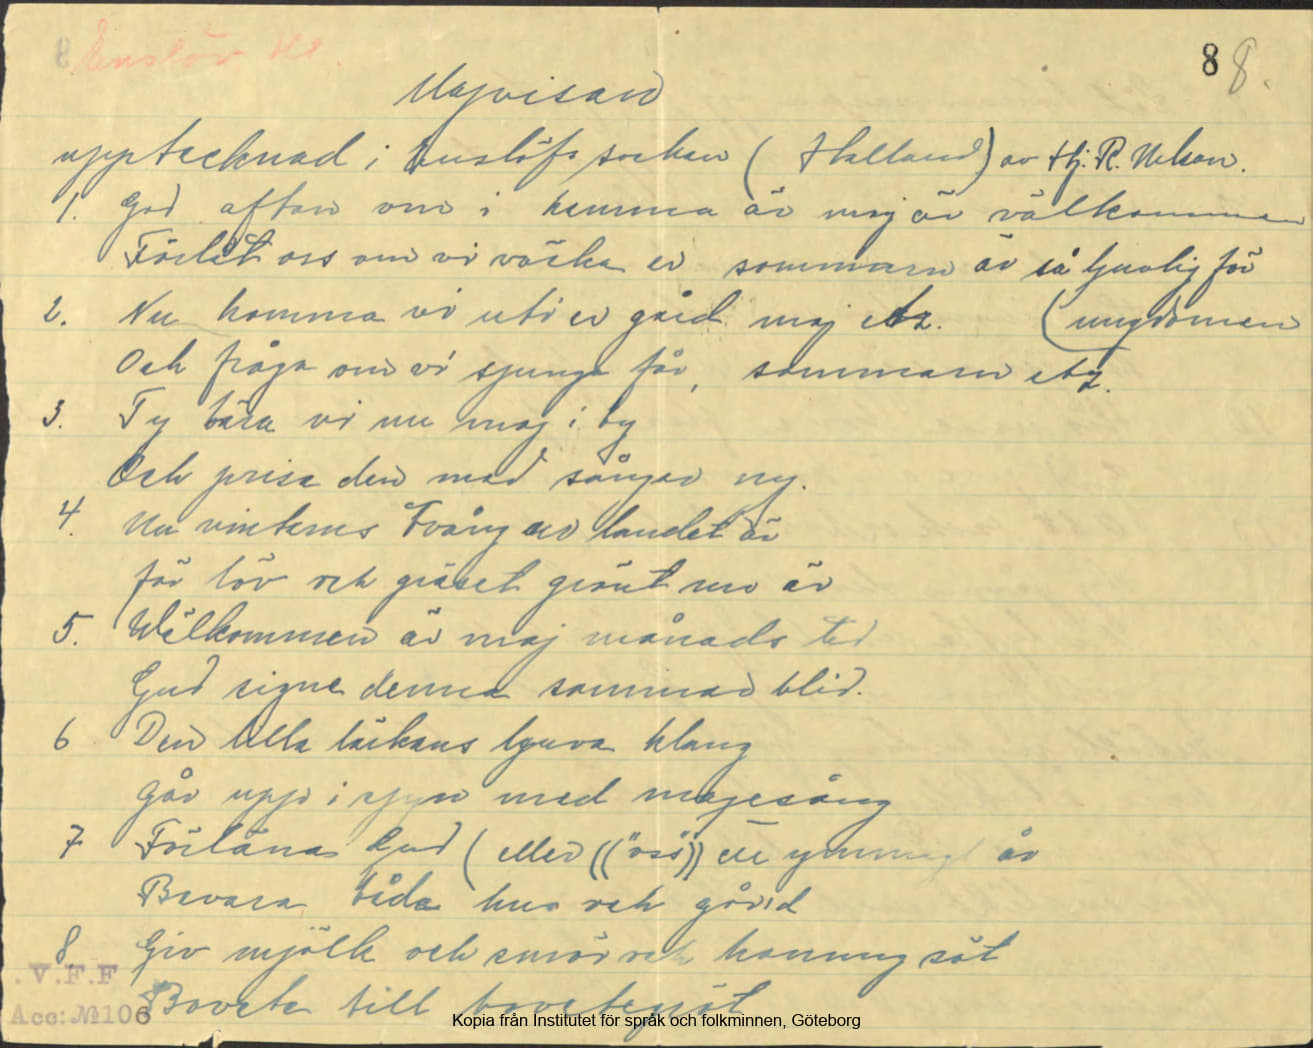 Enslöv Hl.
8 8.
Majvisan
upptecknad i Enslöfs socken (Halland) av Hj. R. Nelson.
1. God afton om i hemma är maj är välkommen
Förlåt oss om vi väcka er sommarn är så ljuvlig för
(ungdomen
2. Nu komma vi uti er gård maj etz.
Och fråga om vi sjunga får, sommarn etz.
3. Ty bära vi nu maj i by
Och prisa den med sånger ny.
4. Nu vinterns tvång av landet är
för löv och gräset grönt nu är
5. Wälkommen är maj månads tid
Gud signe denna sommar blid.
6 Den lilla lärkans ljuva klang
Går upp i skyn med majesång
7 Förläna Gud (eller (("oss")) ett ymnigt år
Bevara båda hus och gård
8 Giv mjölk och smör och honung söt
Bovete till bovetegröt
. V.F.F
Acc: № 106
Kopia från Institutet för språk och folkminnen, Göteborg